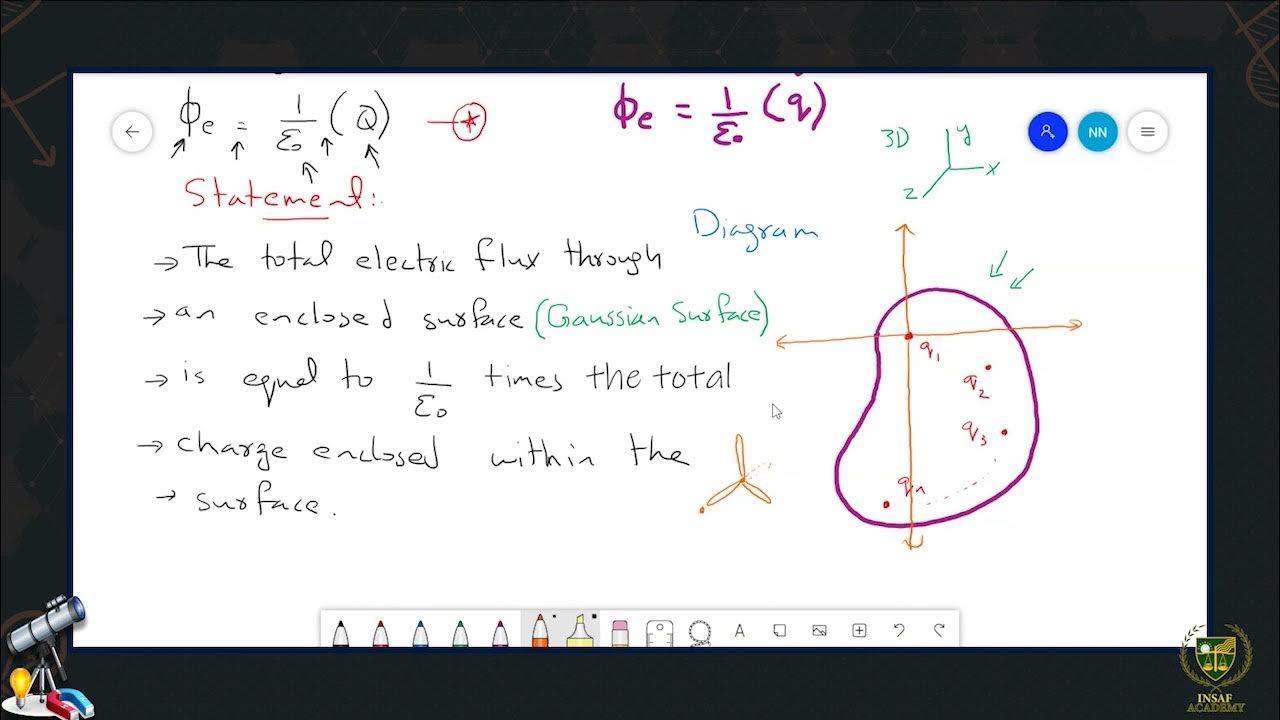 ϕe = 1/ε₀ (Q)
ϕe = 1/ε₀ (q)
NN
3D
y
x
z
Statement:
Diagram
→ The total electric flux through
→ an enclosed surface (Gaussian Surface)
→ is equal to 1/ε₀ times the total
→ charge enclosed within the
→ surface.
q₁
q₂
q₃
qn
A
INSAF
ACADEMY